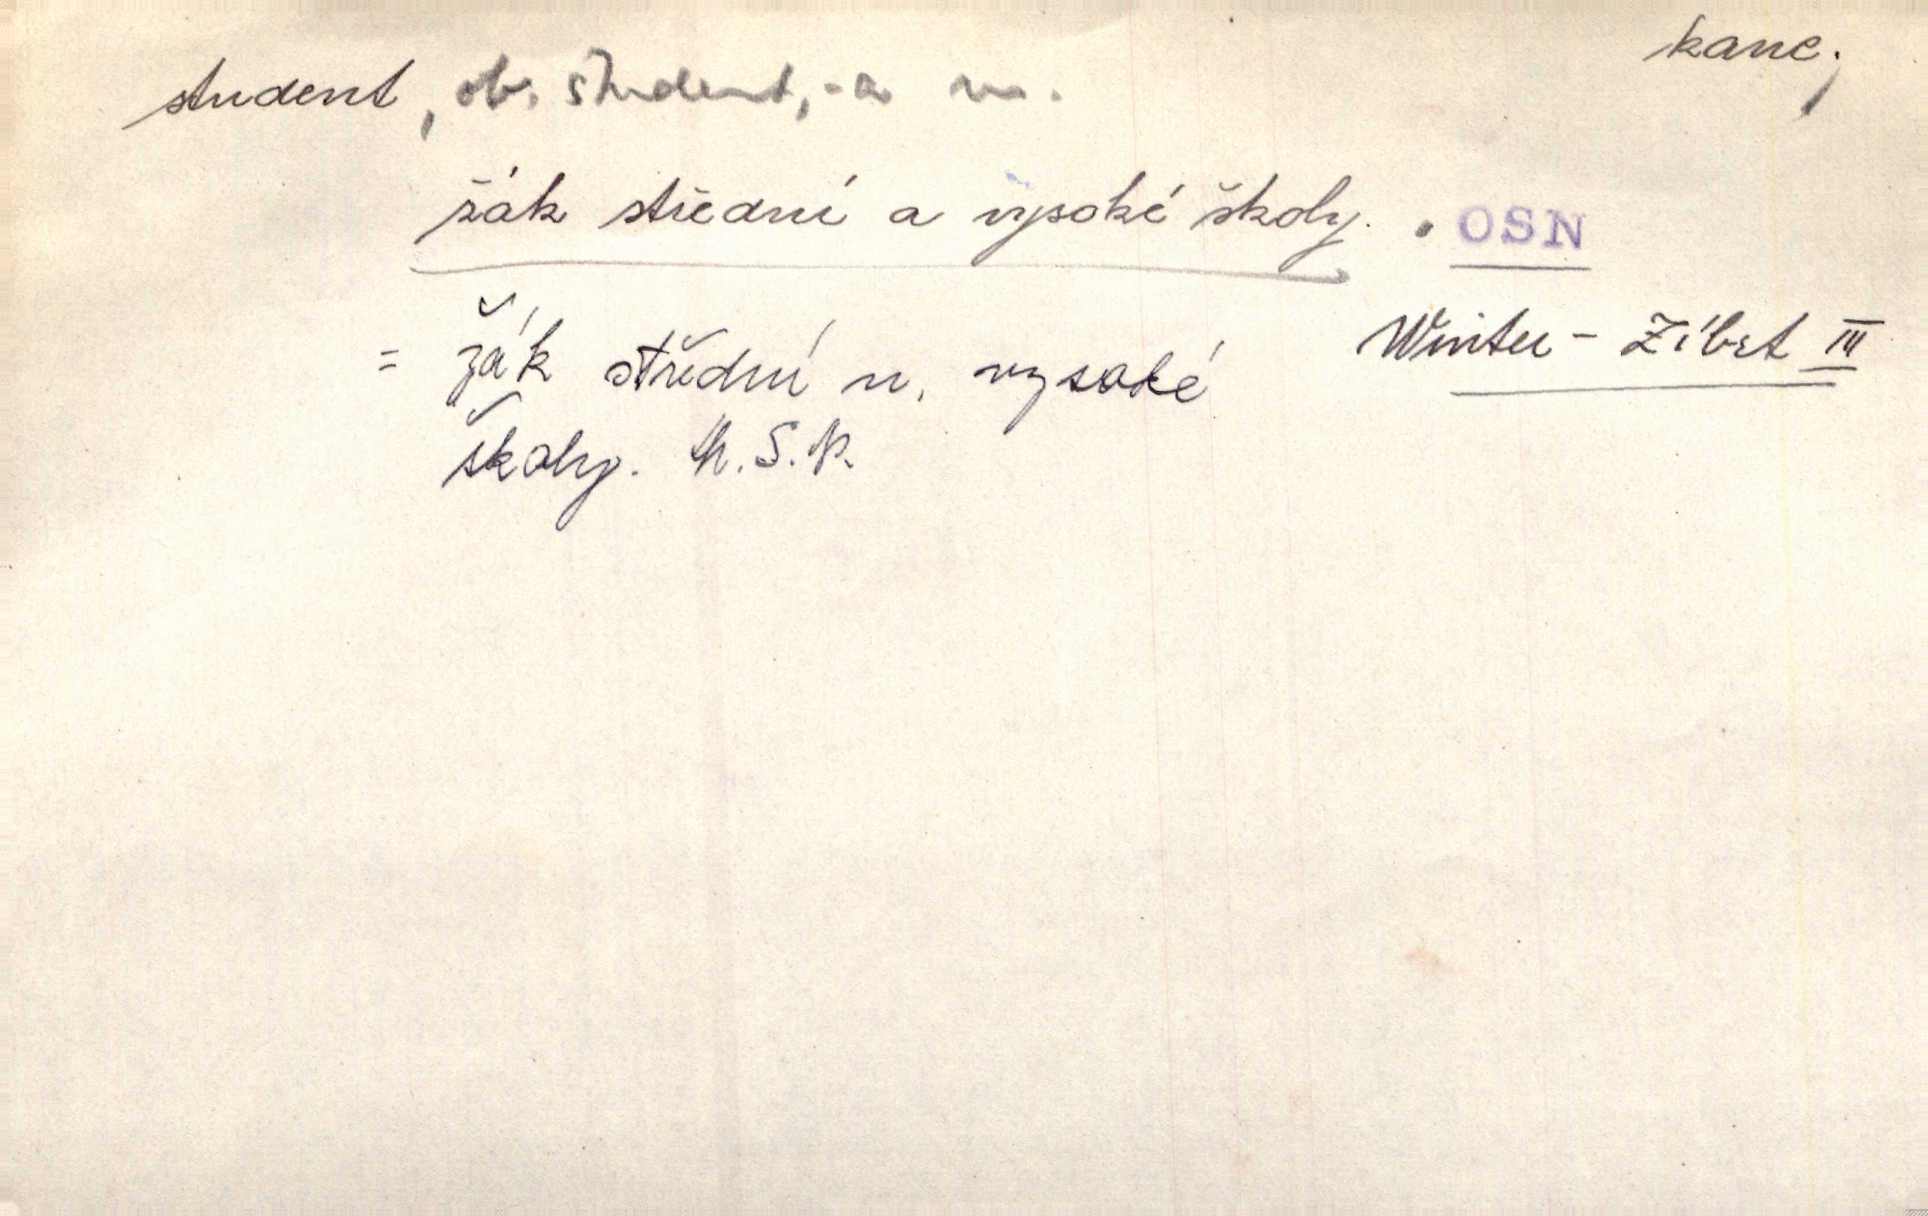 kanc.
student, ob. študent, -a m.
žák střední a vysoké školy. . OSN
= žák střední n. vysoké
školy.
Winter - Zíbrt III